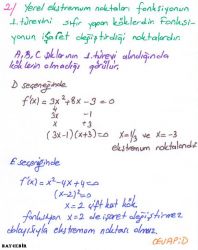 2) Yerel ekstremum noktaları fonksiyonun
1. türevini sıfır yapan köklerdir. Fonksi-
yonun işaret değiştirdiği noktalardır.
A, B, C şıklarının 1. türevi alındığında
köklerin olmadığı görülür.
D seçeneğinde
f'(x) = 3x²+8x-3 = 0
3x -1
x +3
(3x-1)(x+3) = 0 x=1/3 ve x=-3
ekstremum noktalarıdır
E seçeneğinde
f'(x) = x²-4x+4=0
(x-2)²=0
x=2 çift kat kök
fonksiyon x=2 de işaret değiştirmez
dolayısıyla ekstremum noktası olmaz.
CEVAP:D
BAYGEBİR